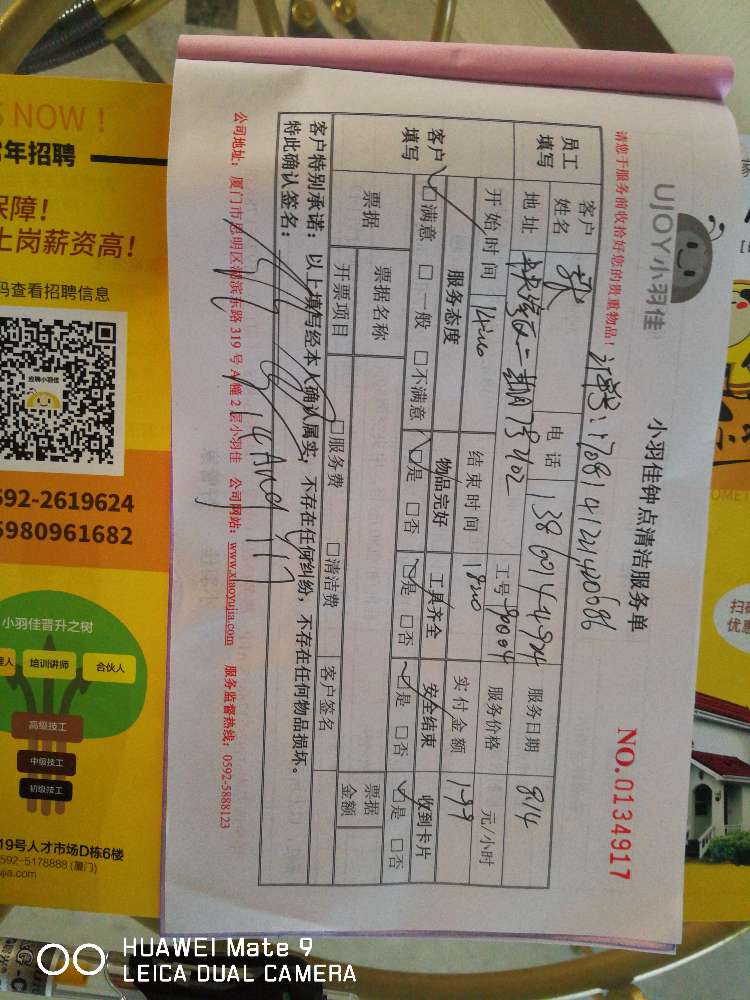 UJOY小羽佳
小羽佳钟点清洁服务单
NO.0134917
请您于服务前收拾好您的贵重物品!
员工填写
客户姓名
张
电话
服务日期
8.14
地址
工号
服务价格
元/小时
开始时间
结束时间
1820
实付金额
199
客户填写
服务态度
物品完好
工具齐全
安全结束
收到卡片
☑满意 □一般 □不满意
☑是 □否
☑是 □否
☑是 □否
☑是 □否
票据
票据名称
票据金额
开票项目
□服务费
□清洁费
客户签名
客户特别承诺:以上填写经本人确认属实,不存在任何纠纷,不存在任何物品损坏。
特此确认签名:
公司地址:厦门市思明区湖滨东路 319 号 A 幢 2 层小羽佳 公司网站:www.xiaoyujia.com 服务监督热线:0592-5888123
NOW!
年招聘
保障!
上岗薪资高!
码查看招聘信息
应聘小羽佳
592-2619624
5980961682
小羽佳晋升之树
培训讲师
合伙人
高级技工
中级技工
初级技工
19号人才市场D栋6楼
592-5178888 (厦门)
ujia.com
扫码
优惠
HUAWEI Mate 9
LEICA DUAL CAMERA